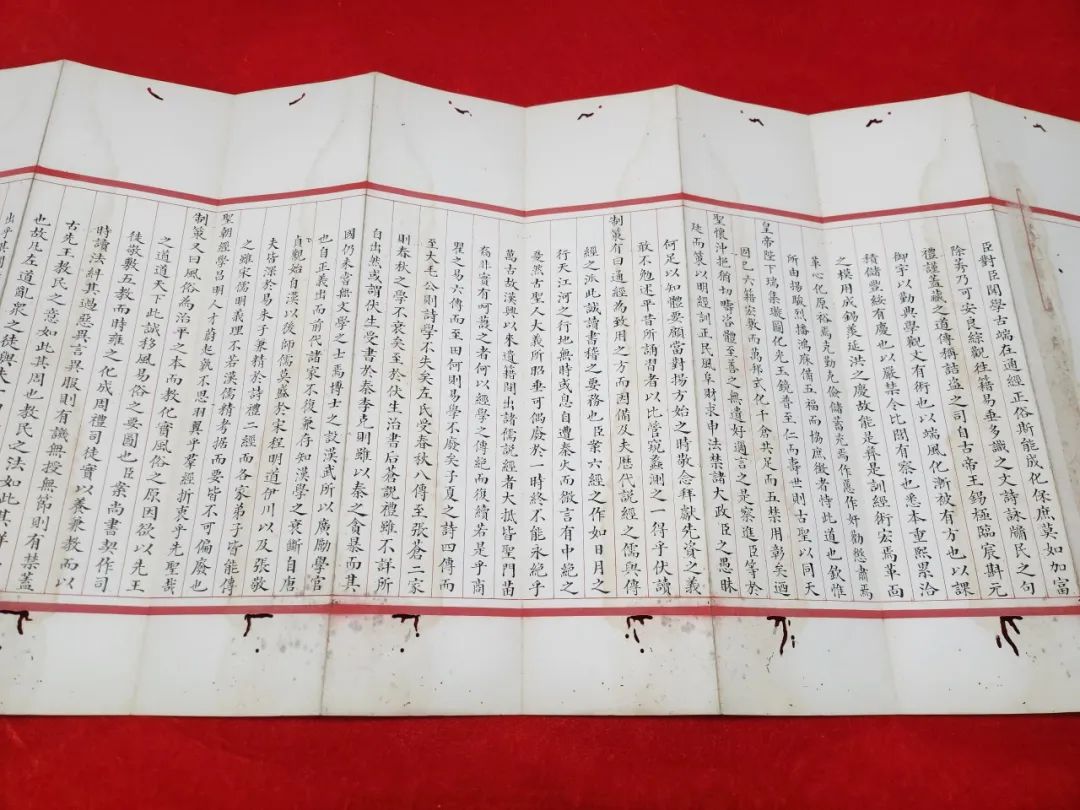 臣對臣聞學古端在通經正俗斯能成化保庶莫如加富
除莠乃可安良綜觀往籍易垂多識之文詩詠牖民之句
禮謹蓋藏之道傳稱詰盜之司自古帝王錫極臨宸斟元
御宇以勤典學觀文有術也以端風化漸被有方也以課
積儲豐綏有慶也以嚴禁令比閭有察也悉本重熙累洽
之模用成錫羨延洪之慶故能是彝是訓經術宏焉革面
革心化原裕焉克勤克儉儲蓄充焉作慝作奸勸懲肅焉
所由揚駿烈播鴻庥備五福而協庶徵者恃此道也欽惟
皇帝陛下瑞集璇圖化光玉鏡普至仁而壽世則古聖以同天
固已六籍宏敷而萬邦式化千倉共足而五禁用彰矣迺
聖懷沖挹猶切疇咨體至善之無遺好邇言之是察進臣等於
廷而策以明經訓正民風阜財求申法禁諸大政臣之愚昧
何足以知體要顧當對揚方始之時敬念拜獻先資之義
敢不勉述平昔所誦習者以比管窺蠡測之一得乎伏讀
制策有曰通經為致用之方而因備及夫歷代說經之儒與傳
經之派此誠讀書稽之要務也臣案六經之作如日月之
行天江河之行地無時或息自遭秦火而微言有中絕之
憂然古聖人大義所昭垂可偶廢於一時終不能永絕乎
萬古故漢興以來遺籍閒出諸儒說經者大抵皆聖門苗
裔非實有呵護之者何以經學之傳絕而復續若是乎商
瞿之易六傳而至田何則易學不廢矣子夏之詩四傳而
至大毛公則詩學不失矣左氏受春秋八傳至張倉二家
則春秋之學不衰矣至於伏生治書后蒼說禮雖不詳所
自出然或謂伏生受書於秦李克則雖以秦之貪暴而其
國仍未嘗無文學之士焉博士之設漢武所以廣勵學官
也自正義出而前代諸家不復兼存知漢學之衰斷自唐
貞觀始自漢以後師儒莫盛於宋程明道伊川以及張敬
夫皆深於易朱子兼精於詩禮二經而各家弟子皆能傳
之雖宋儒明義理不若漢儒精考据而要皆不可偏廢也
聖朝經學昌明人才蔚起孰不思羽翼乎羣經折衷乎先聖哉
制策又曰風俗為治平之本而教化實風俗之原因欲以先王
之道道天下此誠移風易俗之要圖也臣案尚書契作司
徒敬敷五教而時雍之化成周禮司徒實以養兼教而以
時讀法糾其過惡異言異服則有譏無授無節則有禁蓋
古先王教民之意如此其周也教民之法如此其詳
也故凡左道亂衆之徒與夫
出乎其閒